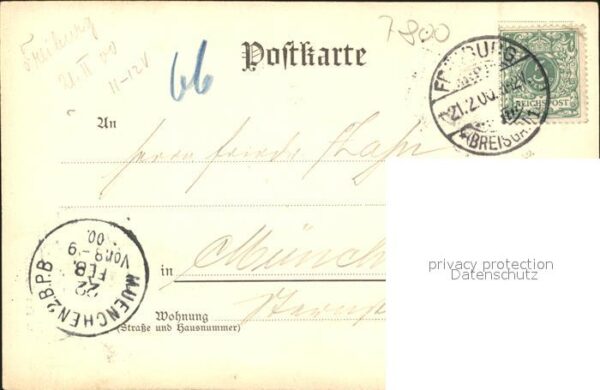 7800
Freiburg
21. II 00
11-12V
66
Postkarte
FREIBURG
21.2.00.11-12V.
(BREISGAU)
REICHSPOST
An
Herrn
privacy protection
Datenschutz
MUENCHEN 2.B.P.B
22
FEB.
Vor.8-9
00.
in Münch
Wohnung
(Straße und Hausnummer)